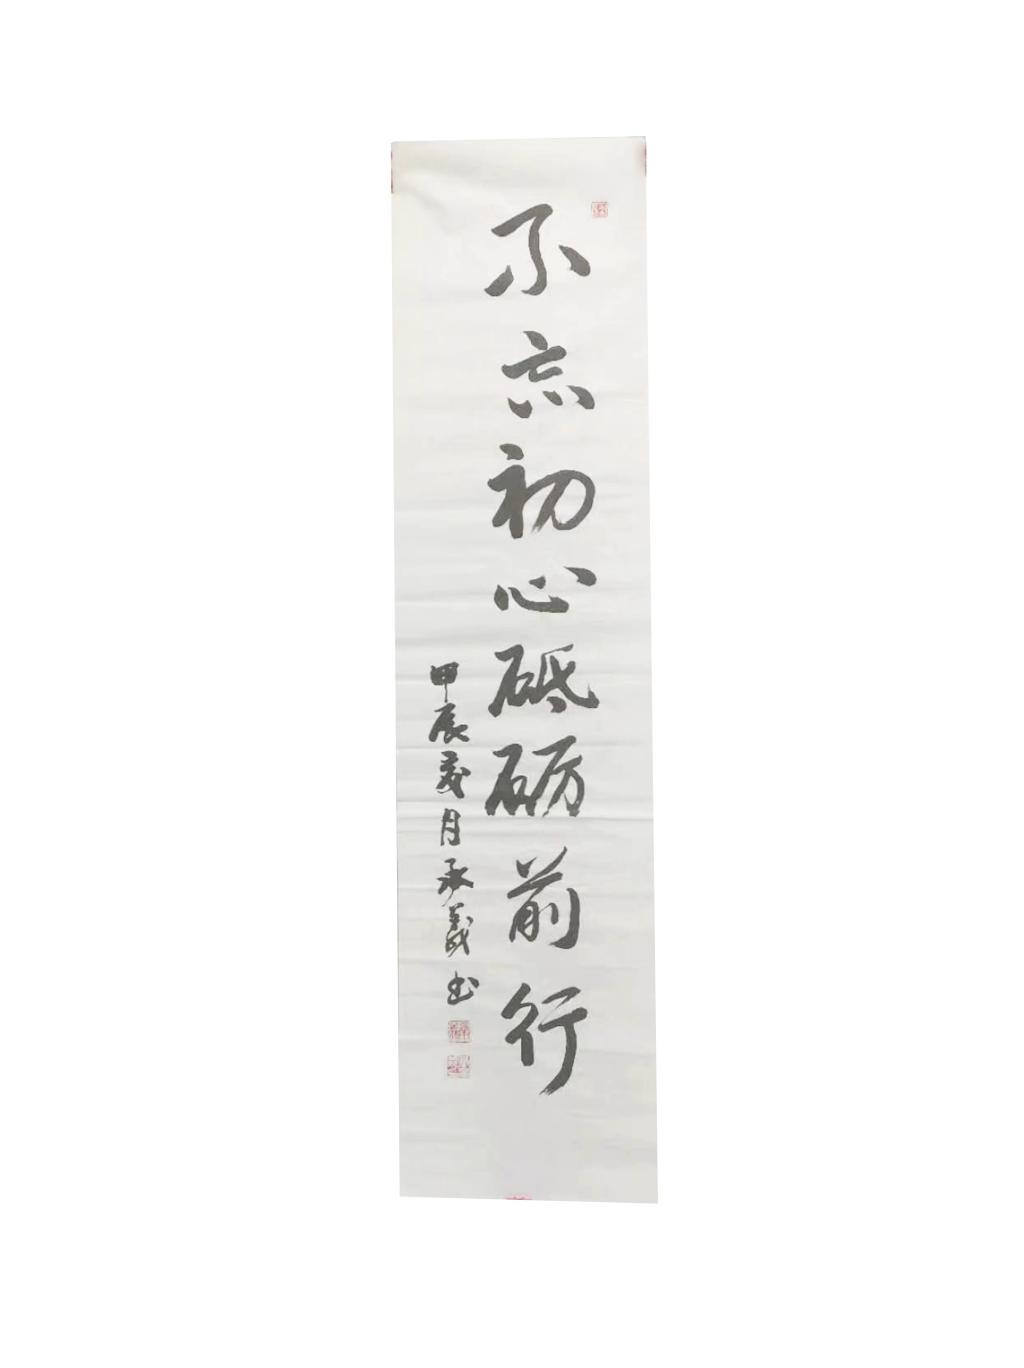 不忘初心砥砺前行
甲辰夏月承義书